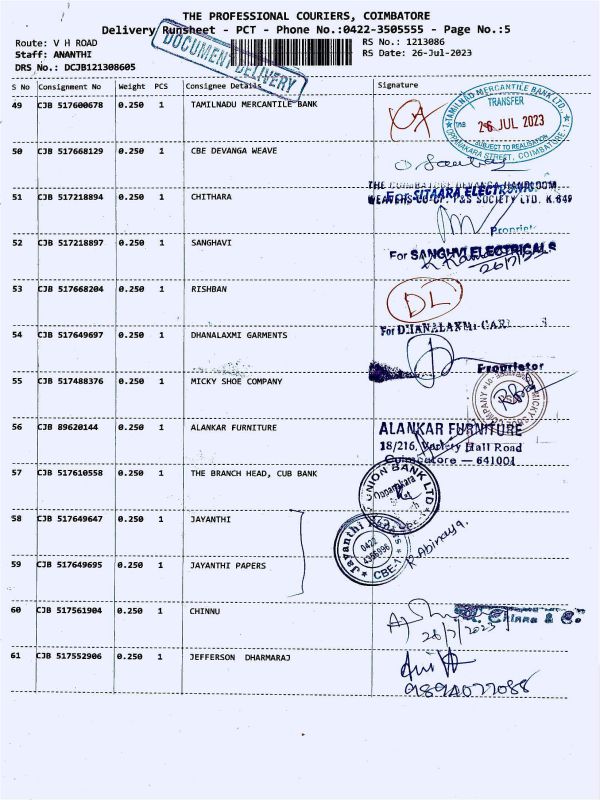 THE PROFESSIONAL COURIERS, COIMBATORE
Delivery Runsheet - PCT - Phone No.:0422-3505555 - Page No.:5
Route: V H ROAD
RS No.: 1213086
Staff: ANANTHI
RS Date: 26-Jul-2023
DRS No.: DCJB121308605
DOCUMENT DELIVERY
S No Consignment No Weight PCS Consignee Details Signature
49 CJB 517600678 0.250 1 TAMILNADU MERCANTILE BANK
TAMILNAD MERCANTILE BANK LTD.,
TRANSFER
26 JUL 2023
SUBJECT TO REALISATION
OPPANAKARA STREET, COIMBATORE-1
50 CJB 517668129 0.250 1 CBE DEVANGA WEAVE
THE COIMBATORE DEVANGA HANDLOOM
WEAVERS CO-OP. P&S SOCIETY LTD. K.649
51 CJB 517218894 0.250 1 CHITHARA
For SITAARA ELECTRONIC
Propriet
52 CJB 517218897 0.250 1 SANGHAVI
For SANGHVI ELECTRICALS
26/7/23
53 CJB 517668204 0.250 1 RISHBAN
DL
54 CJB 517649697 0.250 1 DHANALAXMI GARMENTS
For DHANALAXMI GAR
Proprietor
55 CJB 517488376 0.250 1 MICKY SHOE COMPANY
56 CJB 89620144 0.250 1 ALANKAR FURNITURE
ALANKAR FURNITURE
18/216, Variety Hall Road
Coimbatore - 641001
57 CJB 517610558 0.250 1 THE BRANCH HEAD, CUB BANK
UNION BANK LTD
Oppanakara
58 CJB 517649647 0.250 1 JAYANTHI
Jayanthi Papers
0422
4366996
CBE-1
R Abinaya.
59 CJB 517649695 0.250 1 JAYANTHI PAPERS
60 CJB 517561904 0.250 1 CHINNU
26/7/2023
Chinnu & Co
61 CJB 517552906 0.250 1 JEFFERSON DHARMARAJ
9894077088